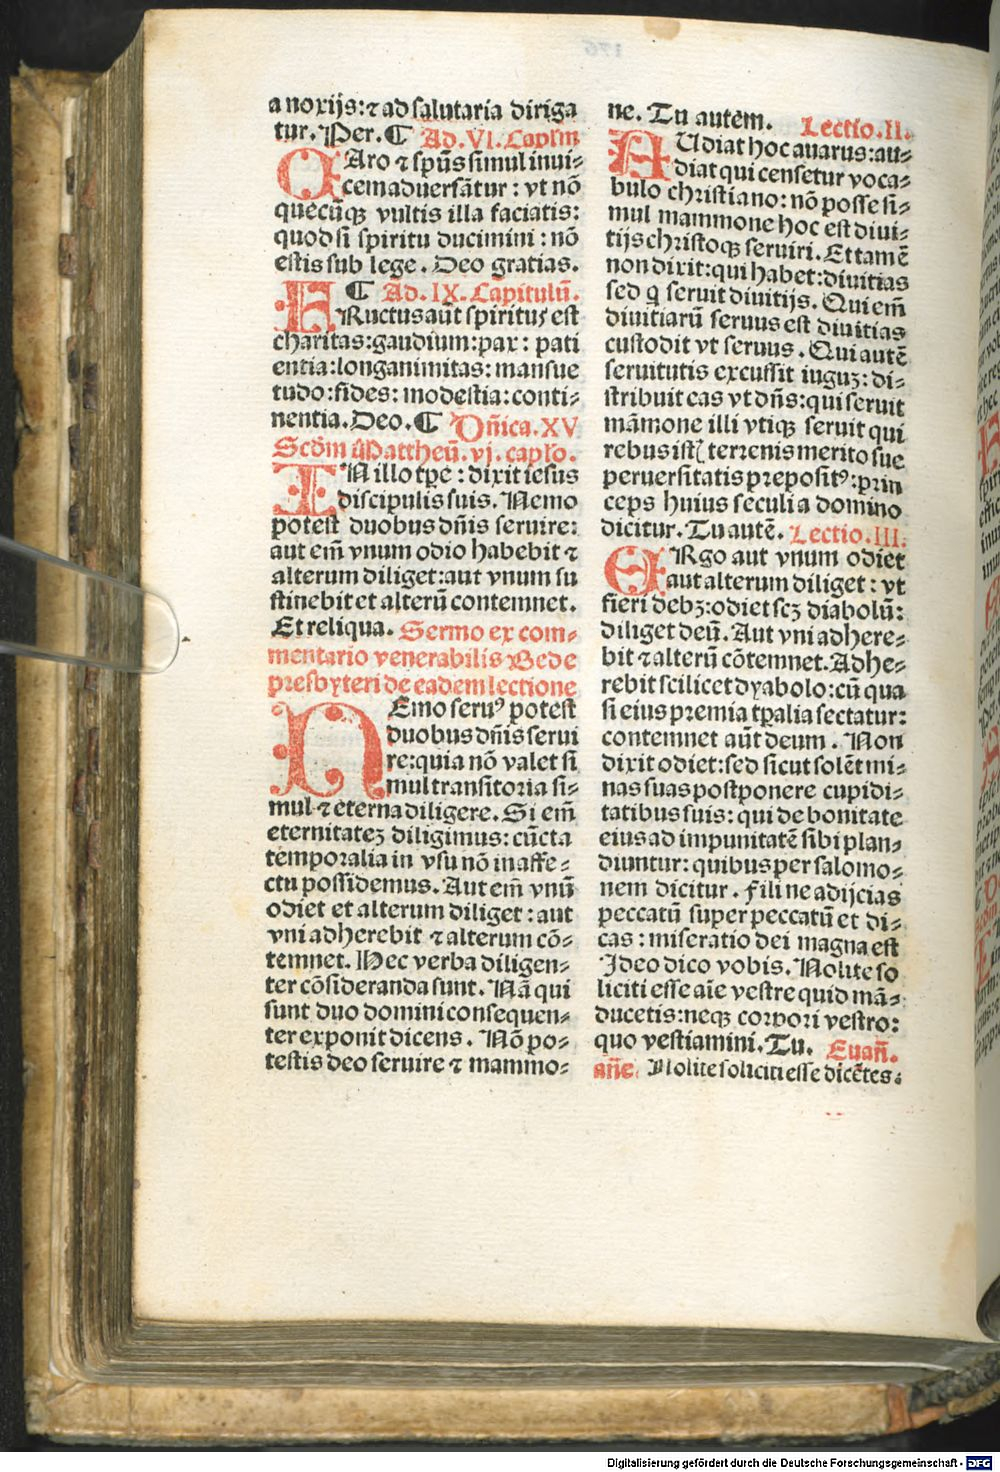 a noxijs: ⁊ ad salutaria diriga
tur. Per. ¶ Ad. VI. Caplm
CAro ⁊ spūs simul inui⸗
cem aduersātur: vt nō
quecūqꝫ vultis illa faciatis:
quod si spiritu ducimini: nō
estis sub lege. Deo gratias.
¶ Ad. IX. Capitulū.
FRuctus aūt spiritus est
charitas: gaudium: pax: pati
entia: longanimitas: mansue
tudo: fides: modestia: conti⸗
nentia. Deo. ¶ Dn̄ica. XV
Scd̄m Mattheū. vj. caplo.
IN illo tp̄e: dixit iesus
discipulis suis. Nemo
potest duobus dn̄is seruire:
aut em̄ vnum odio habebit ⁊
alterum diliget: aut vnum su
stinebit et alterū contemnet.
Et reliqua. Sermo ex com⸗
mentario venerabilis Bede
presbyteri de eadem lectione
NEmo seruꝰ potest
duobus dn̄is serui
re: quia nō valet si
mul transitoria si⸗
mul ⁊ eterna diligere. Si em̄
eternitateꝫ diligimus: cūcta
temporalia in vsu nō in affe⸗
ctu possidemus. Aut em̄ vnū
odiet et alterum diliget: aut
vni adherebit ⁊ alterum cō⸗
temnet. Hec verba diligen⸗
ter cōsideranda sunt. Nā qui
sunt duo domini consequen⸗
ter exponit dicens. Nō po⸗
testis deo seruire ⁊ mammo⸗
ne. Tu autem. Lectio. II.
AUdiat hoc auarus: au⸗
diat qui censetur voca⸗
bulo christiano: nō posse si⸗
mul mammone hoc est diui⸗
tijs christoqꝫ seruiri. Et tamē
non dixit: qui habet: diuitias
sed q̄ seruit diuitijs. Qui em̄
diuitiarū seruus est diuitias
custodit vt seruus. Qui autē
seruitutis excussit iuguꝫ: di⸗
stribuit eas vt dn̄s: qui seruit
māmone illi vtiqꝫ seruit qui
rebus istꝭ terrenis merito sue
peruersitatis prepositꝰ: prin
ceps huius seculi a domino
dicitur. Tu autē. Lectio. III.
ERgo aut vnum odiet
aut alterum diliget: vt
fieri debꝫ: odiet scꝫ diabolū:
diliget deū. Aut vni adhere⸗
bit ⁊ alterū cōtemnet. Adhe⸗
rebit scilicet dyabolo: cū qua
si eius premia tp̄alia sectatur:
contemnet aūt deum. Non
dixit odiet: sed sicut solēt mi⸗
nas suas postponere cupidi⸗
tatibus suis: qui de bonitate
eius ad impunitatē sibi plan⸗
diuntur: quibus per salomo⸗
nem dicitur. Fili ne adijcias
peccatū super peccatū et di⸗
cas: miseratio dei magna est
Ideo dico vobis. Nolite so
liciti esse aīe vestre quid mā⸗
ducetis: neqꝫ corpori vestro:
quo vestiamini. Tu. Euan̄.
an̄e. Nolite soliciti esse dicētes:
Digitalisierung gefördert durch die Deutsche Forschungsgemeinschaft - DFG